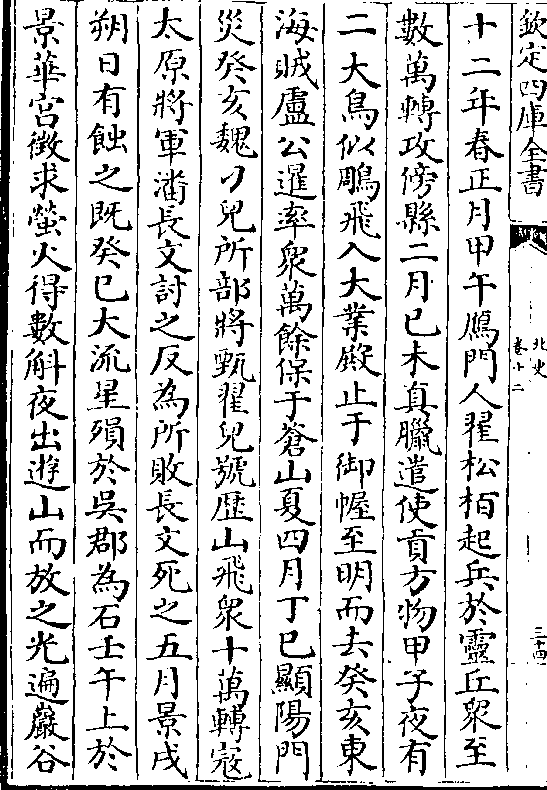 欽定四庫全書
北史
卷十二
三十四
十二年春正月甲午鴈門人翟松栢起兵於靈丘眾至
數萬轉攻傍縣二月己未真臘遣使貢方物甲子夜有
二大鳥似鵰飛入大業殿止于御幄至明而去癸亥東
海賊盧公暹率眾萬餘保于蒼山夏四月丁巳顯陽門
災癸亥魏刁兒所部將甄翟兒號歷山飛眾十萬轉寇
太原將軍潘長文討之反為所敗長文死之五月景戌
朔日有蝕之既癸巳大流星殞於吳郡為石壬午上於
景華宮徵求螢火得數斛夜出遊山而放之光遍巖谷